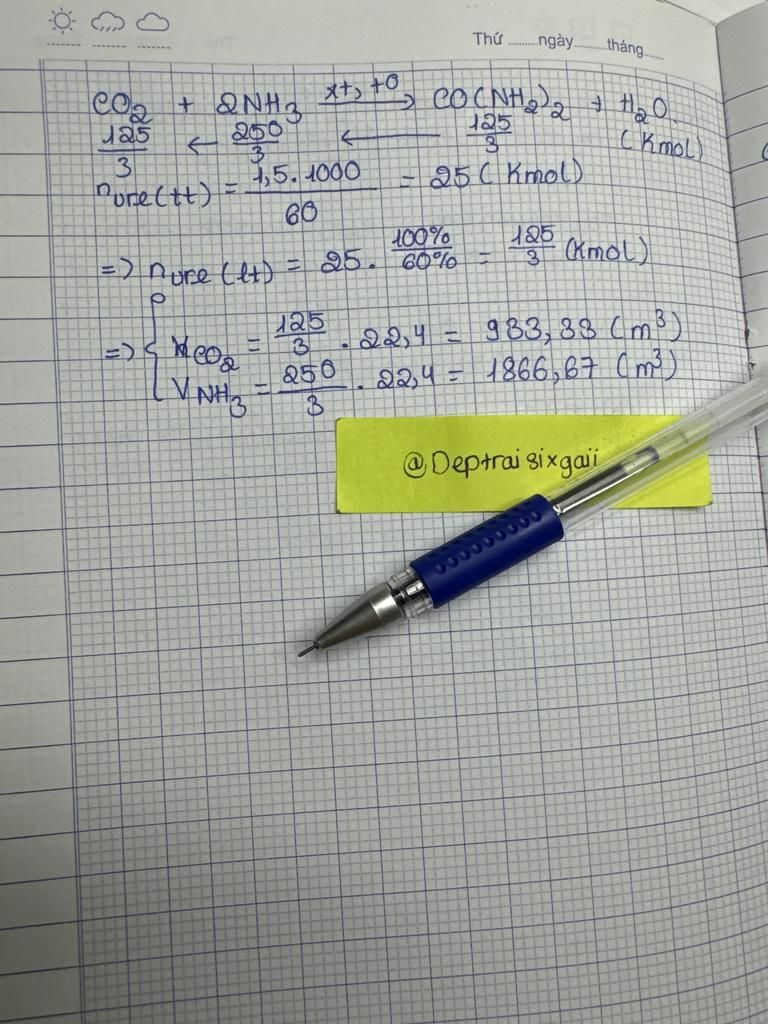 Thứ..........ngày..........tháng......
CO2 + 2NH3 xt, t0 → CO(NH2)2 + H2O.
125/3 ← 250/3 ← 125/3 (Kmol)
nure(tt) = 1,5.1000/60 = 25 (Kmol)
=> nure (lt) = 25 . 100%/60% = 125/3 (Kmol)
=> { VCO2 = 125/3 . 22,4 = 933,33 (m3)
VNH3 = 250/3 . 22,4 = 1866,67 (m3)
@Deptraisixgaii